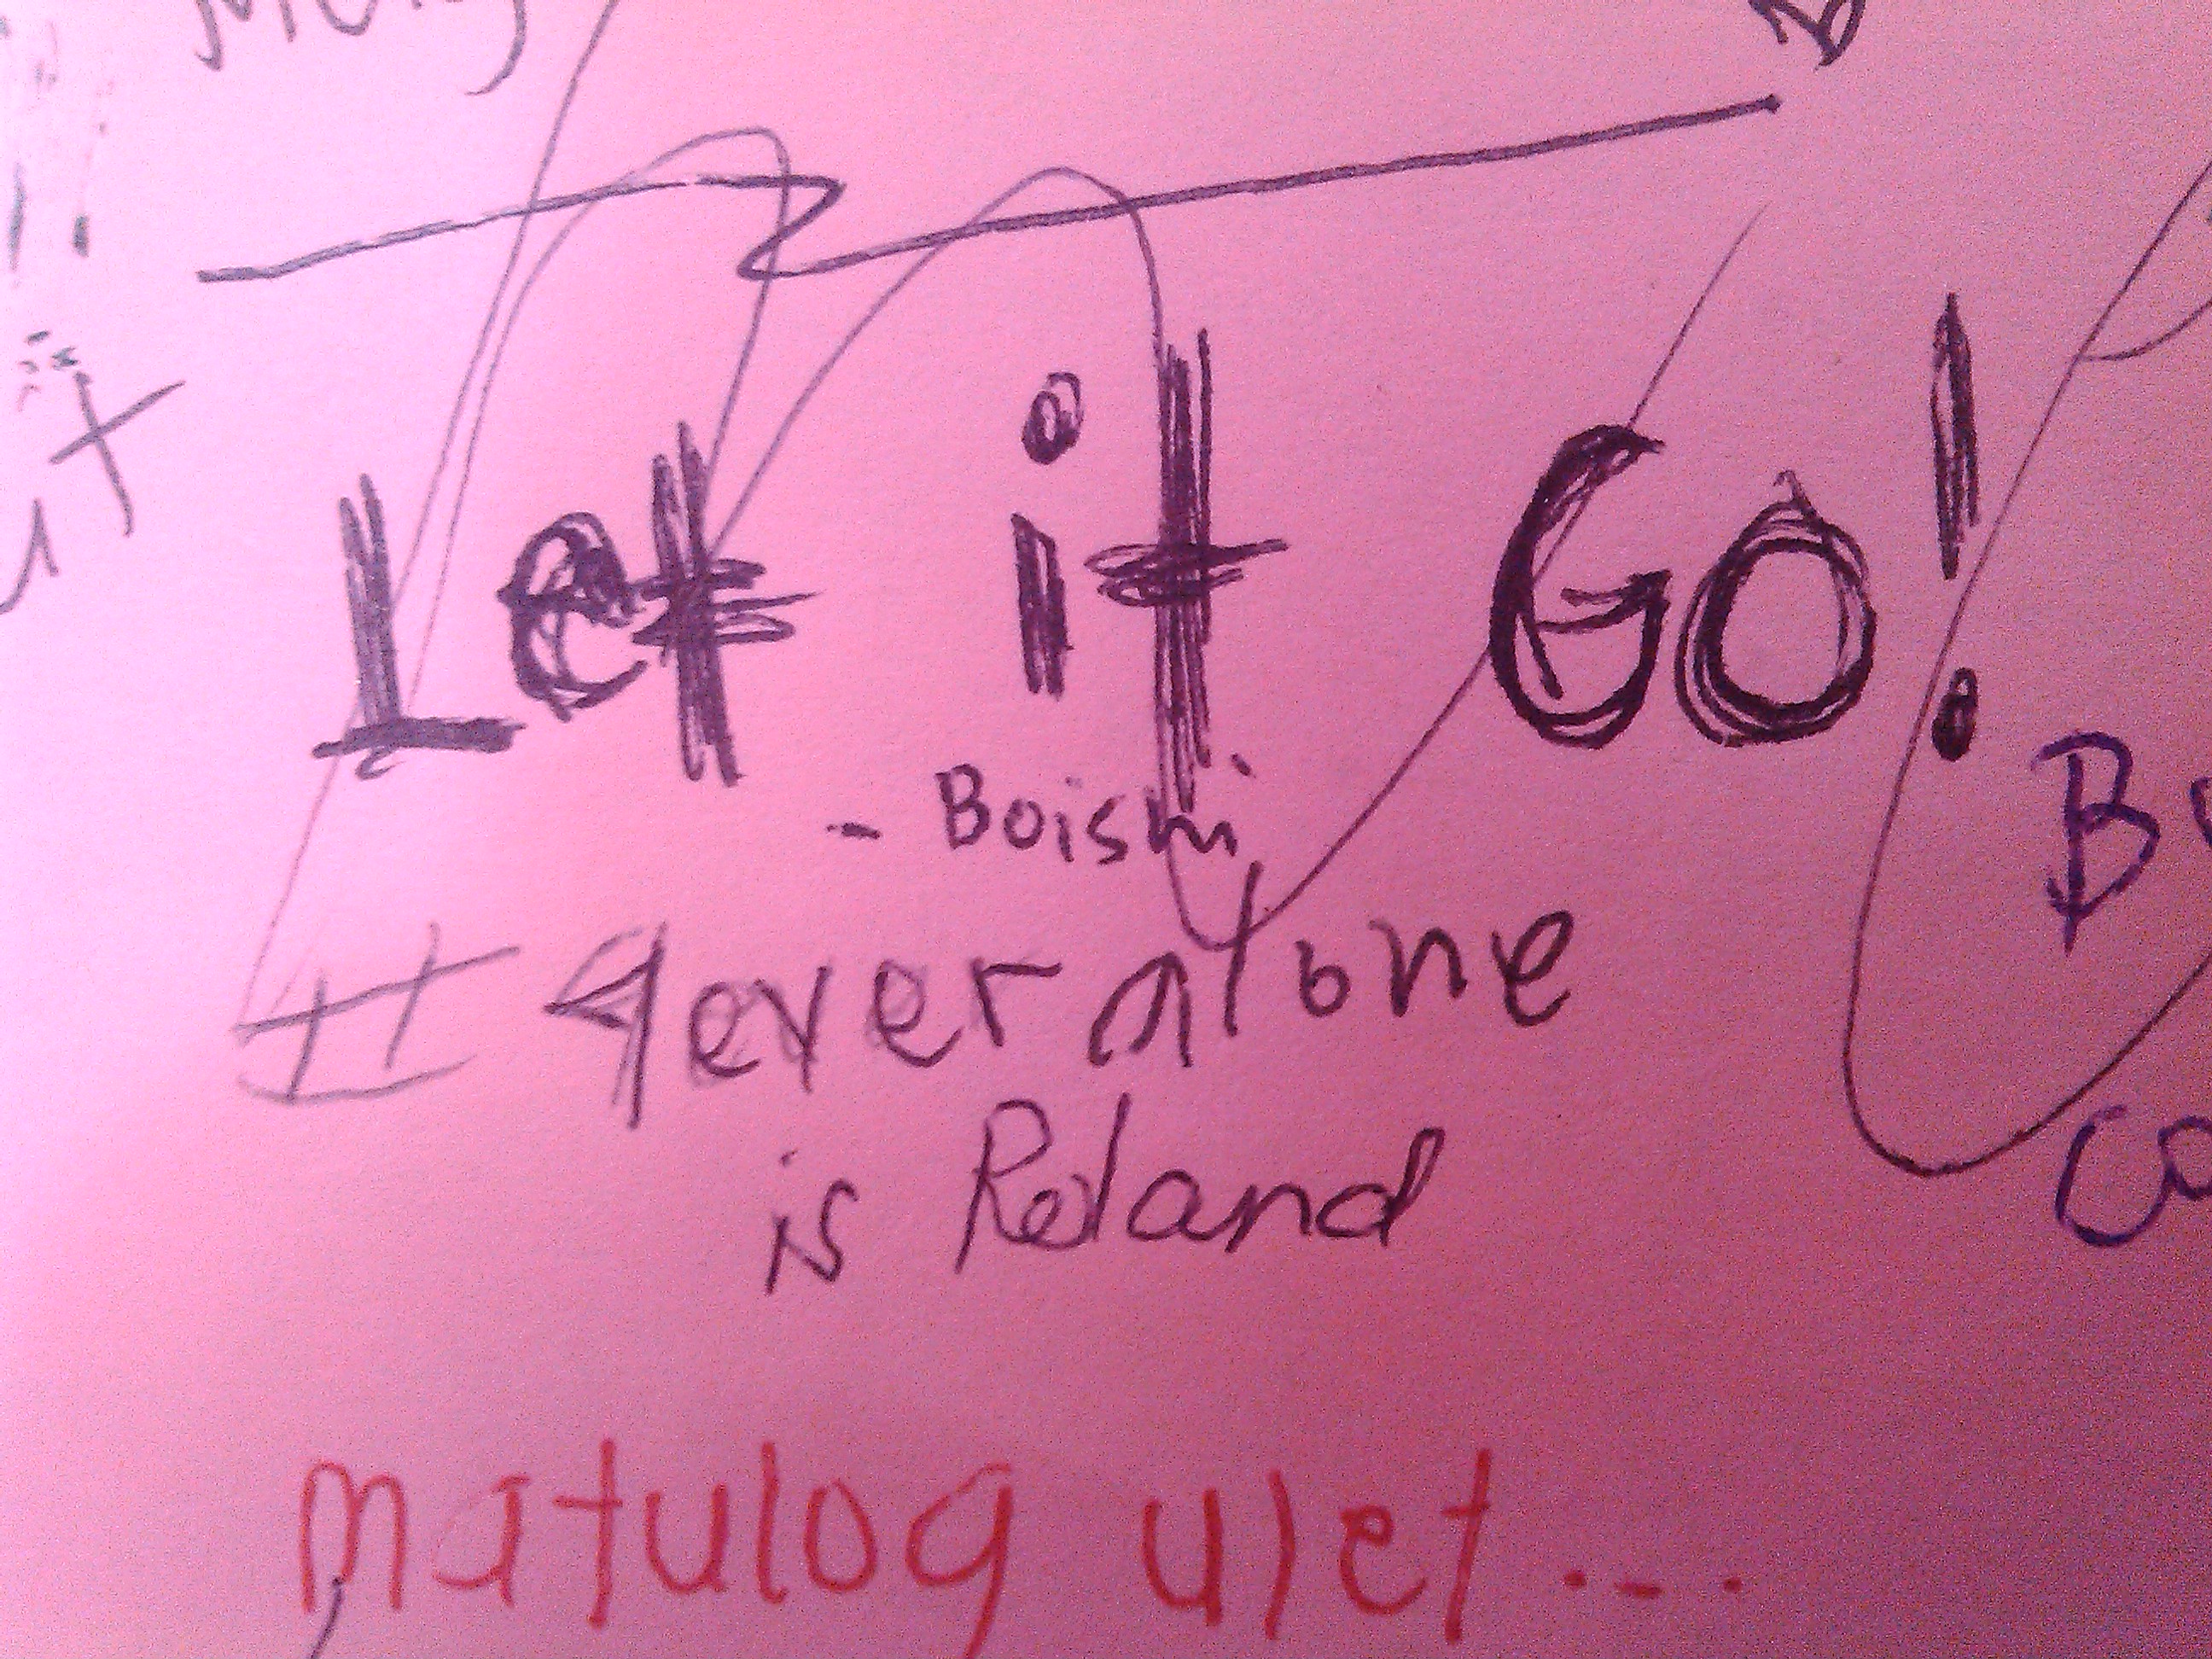 Let it Go!
- Boismi
# 4ever alone
is Roland
matulog ulet...